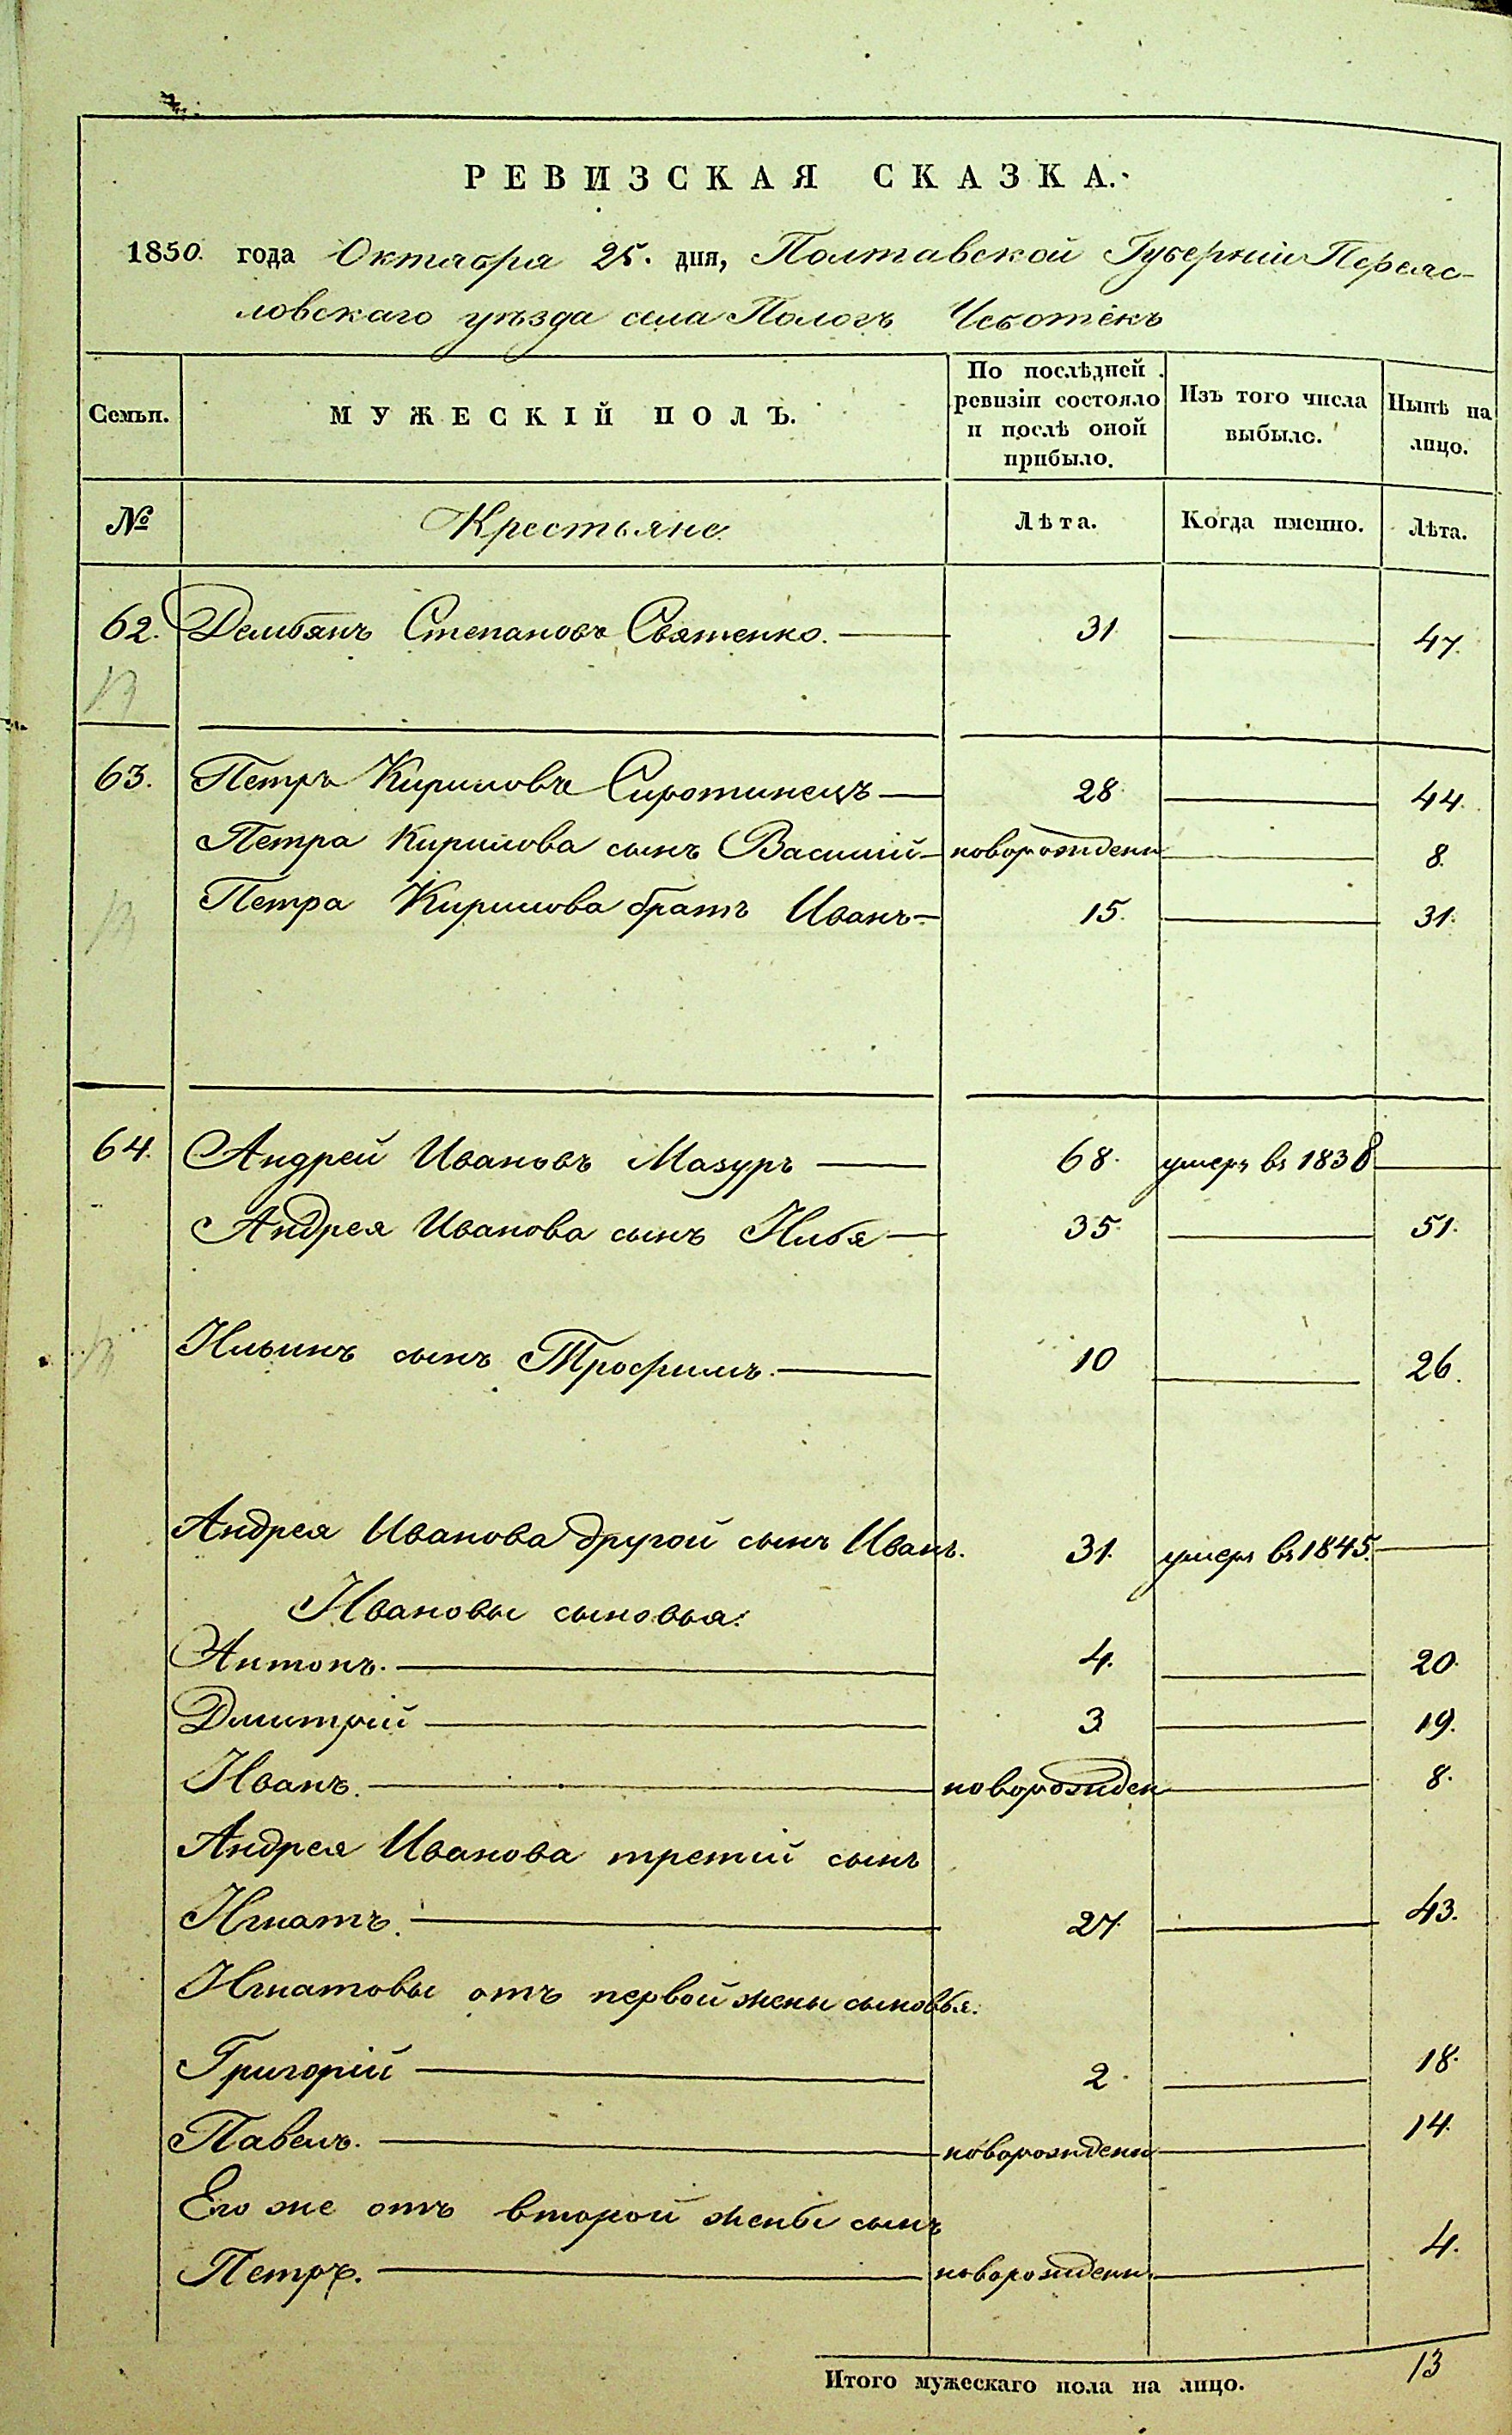 РЕВИЗСКАЯ СКАЗКА.
1850. года Октября 25. дня, Полтавской Губернии Переяс-
ловскаго уѣзда села Пологъ Чеботекъ
Семьи.
МУЖЕСКІЙ ПОЛЪ.
По послѣдней
ревизіи состояло
и послѣ оной
прибыло.
Изъ того числа
выбыло.
Нынѣ на
лицо.
№ Крестьяне Лѣта. Когда именно. Лѣта.
62. Демьянъ Степановъ Святенко. 31 47.
63. Петръ Кириловъ Сиротинецъ 28 44.
Петра Кирилова сынъ Василій новорожденн 8.
Петра Кирилова братъ Иванъ 15. 31.
64. Андрей Ивановъ Мазуръ 68. умеръ въ 1838
Андрея Иванова сынъ Илья 35. 51.
Ильинъ сынъ Трофимъ. 10 26.
Андрея Иванова другой сынъ Иванъ. 31. умеръ въ 1845.
Ивановы сыновья:
Антонъ. 4. 20.
Дмитрій 3 19.
Иванъ. новорожден 8.
Андрея Иванова третій сынъ
Игнатъ. 27. 43.
Игнатовы отъ первой жены сыновья.
Григорій 2. 18.
Павелъ. новорожденн 14.
Его же отъ второй жены сынъ
Петръ. новорожденн. 4.
Итого мужескаго пола на лицо. 13